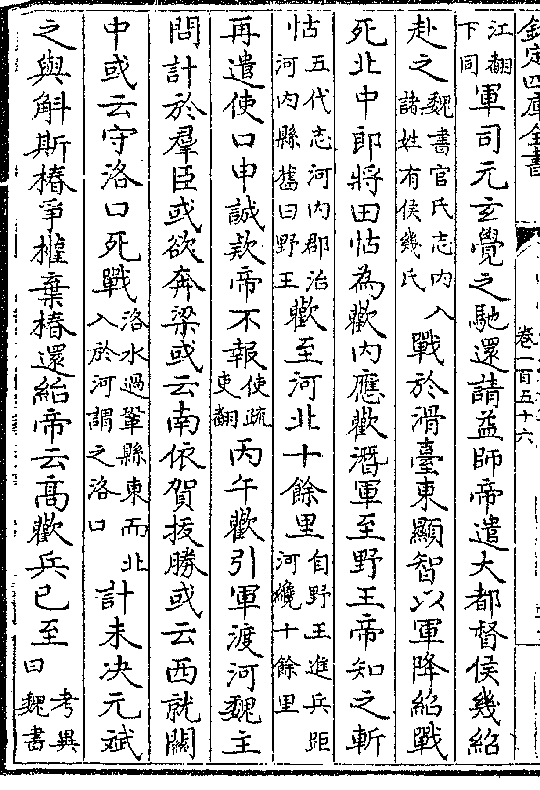 欽定四庫全書 卷一百五十六
江翻下同軍司元玄覺之馳還請益師帝遣大都督侯幾紹
赴之魏書官氏志内入諸姓有侯幾氏戰於滑臺東顯智以軍降紹戰
死北中郎將田怙為歡内應歡潛軍至野王帝知之斬
怙五代志河内郡治河内縣舊曰野王歡至河北十餘里自野王進兵距河纔十餘里
再遣使口申誠款帝不報使疏吏翻丙午歡引軍渡河魏主
問計於羣臣或欲奔梁或云南依賀拔勝或云西就關
中或云守洛口死戰洛水過鞏縣東而北入於河謂之洛口計未決元斌
之與斛斯椿爭權棄椿還紿帝云高歡兵已至考異曰魏書